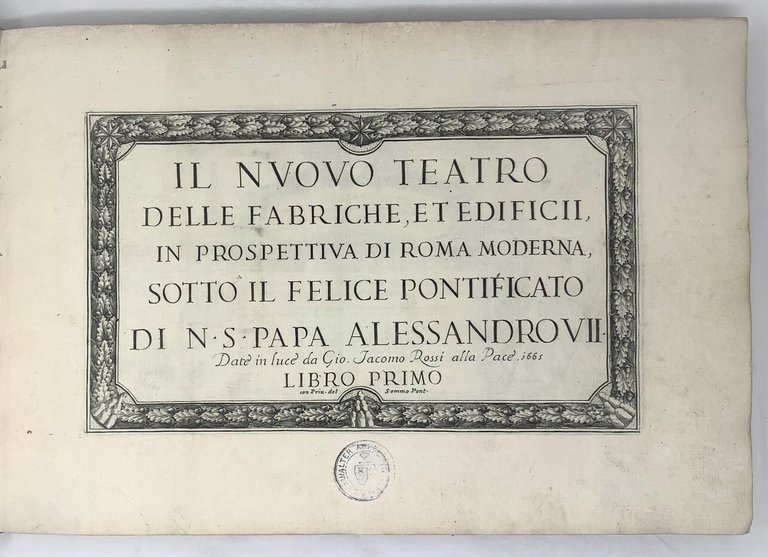 IL NVOVO TEATRO
DELLE FABRICHE, ET EDIFICII,
IN PROSPETTIVA DI ROMA MODERNA,
SOTTO IL FELICE PONTIFICATO
DI N·S·PAPA ALESSANDRO VII·
Date in luce da Gio. Iacomo Rossi alla Pace. 1665
LIBRO PRIMO
con Priu. del Sommo Pont.
WALTER